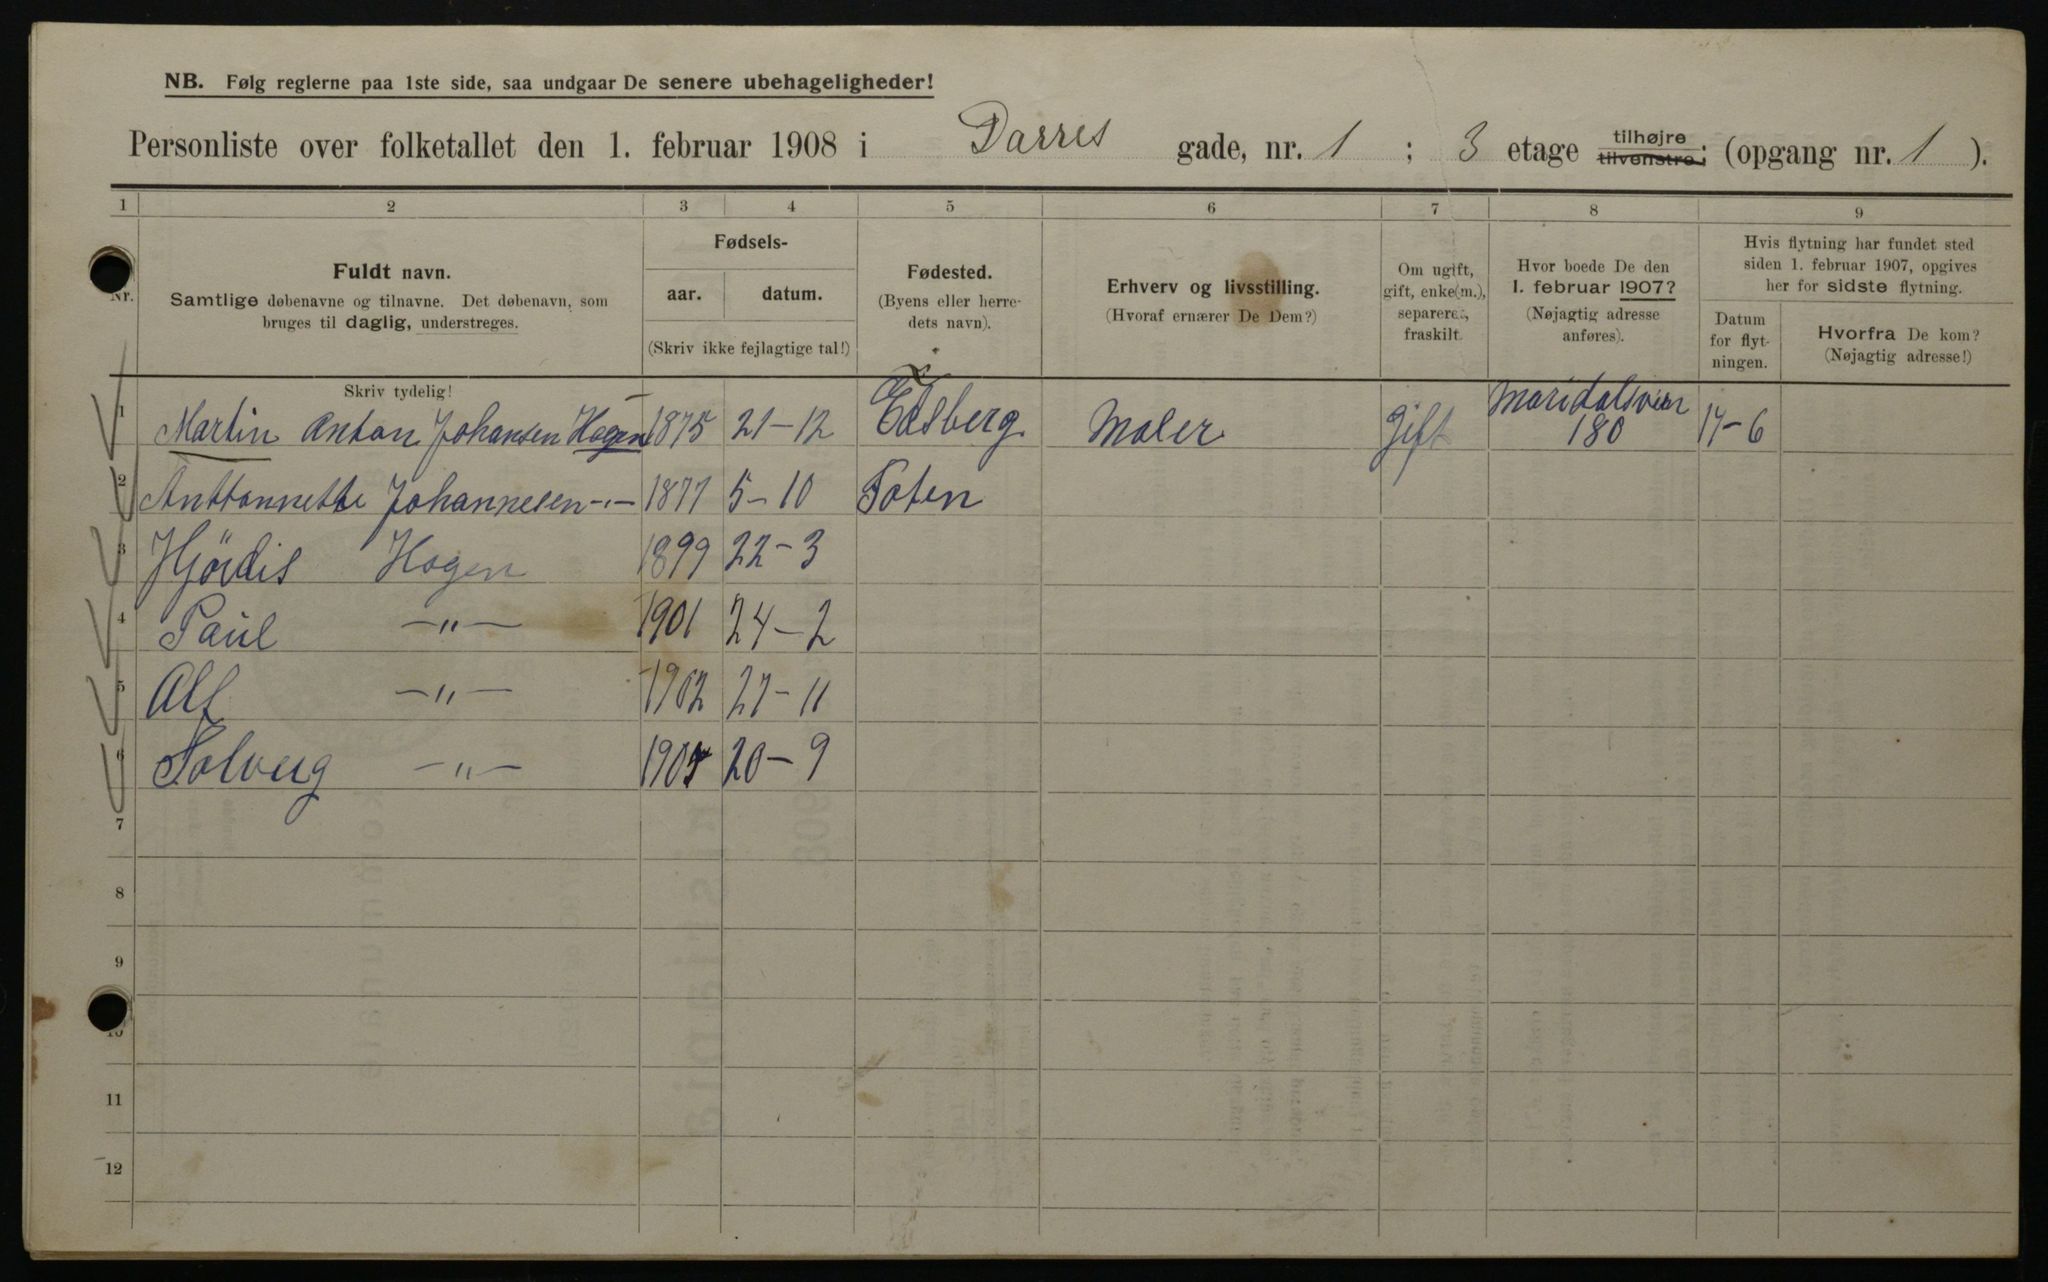 NB. Følg reglerne paa 1ste side, saa undgaar De senere ubehageligheder!
Personliste over folketallet den 1. februar 1908 i Darres gade, nr. 1 ; 3 etage tilhøjre tilvenstre; (opgang nr. 1 ).
1 2 3 4 5 6 7 8 9
Nr.
Fuldt navn.
Samtlige døbenavne og tilnavne. Det døbenavn, som
bruges til daglig, understreges.
Fødsels-
aar. datum.
(Skriv ikke fejlagtige tal!)
Fødested.
(Byens eller herre-
dets navn).
Erhverv og livsstilling.
(Hvoraf ernærer De Dem?)
Om ugift,
gift, enke(m.),
separeret,
fraskilt.
Hvor boede De den
1. februar 1907?
(Nøjagtig adresse
anføres).
Hvis flytning har fundet sted
siden 1. februar 1907, opgives
her for sidste flytning.
Datum
for flyt-
ningen.
Hvorfra De kom?
(Nøjagtig adresse!)
Skriv tydelig!
1 Martin Anton Johansen Hagen 1875 21-12 Eidsberg Maler Gift Maridalsveien 180 17-6
2 Anttonnette Johannesen -"- 1877 5-10 Toten
3 Hjördis Hagen 1899 22-3
4 Paul -"- 1901 24-2
5 Alf -"- 1902 27-11
6 Solveig -"- 1905 20-9
7
8
9
10
11
12